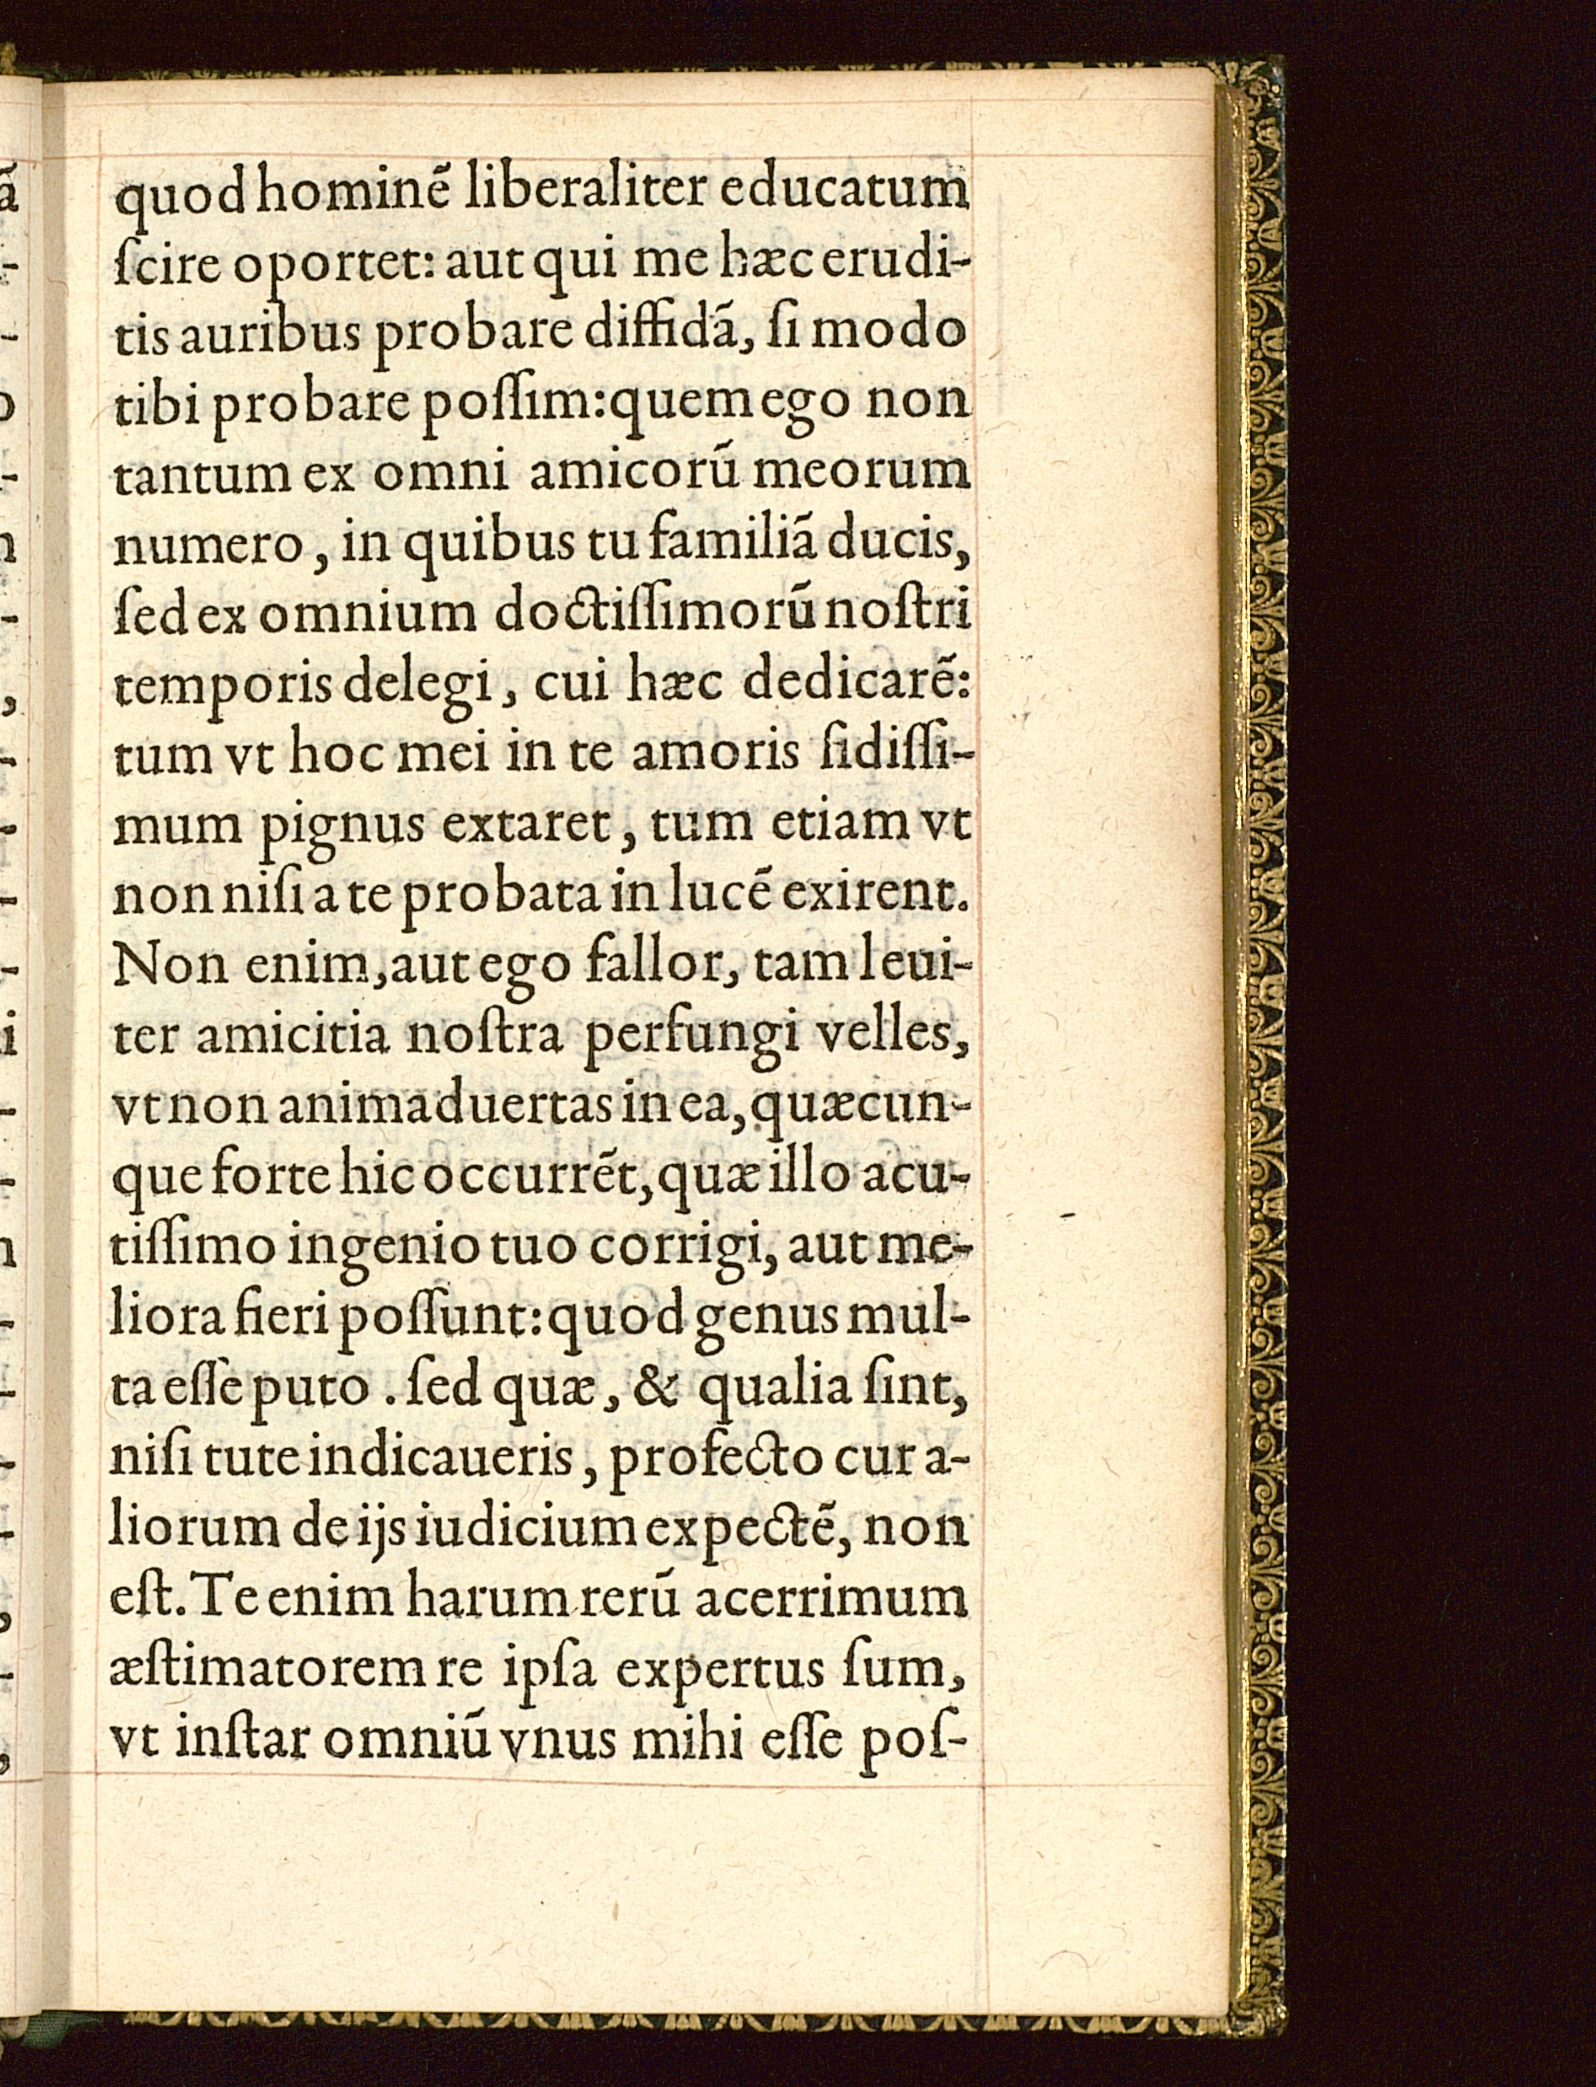 quod hominẽ liberaliter educatum
ſcire oportet: aut qui me hæc erudi-
tis auribus probare diffidã, ſi modo
tibi probare poſſim: quem ego non
tantum ex omni amicorũ meorum
numero, in quibus tu familiã ducis,
ſed ex omnium doctiſſimorũ noſtri
temporis delegi, cui hæc dedicarẽ:
tum vt hoc mei in te amoris fidiſſi-
mum pignus extaret, tum etiam vt
non niſi a te probata in lucẽ exirent.
Non enim, aut ego fallor, tam leui-
ter amicitia noſtra perfungi velles,
vt non animaduertas in ea, quæcun-
que forte hic occurrẽt, quæ illo acu-
tiſſimo ingenio tuo corrigi, aut me-
liora fieri poſſunt: quod genus mul-
ta eſſe puto. ſed quæ, & qualia ſint,
niſi tute indicaueris, profecto cur a-
liorum de ijs iudicium expectẽ, non
eſt. Te enim harum rerũ acerrimum
æſtimatorem re ipſa expertus ſum,
vt inſtar omniũ vnus mihi eſſe poſ-